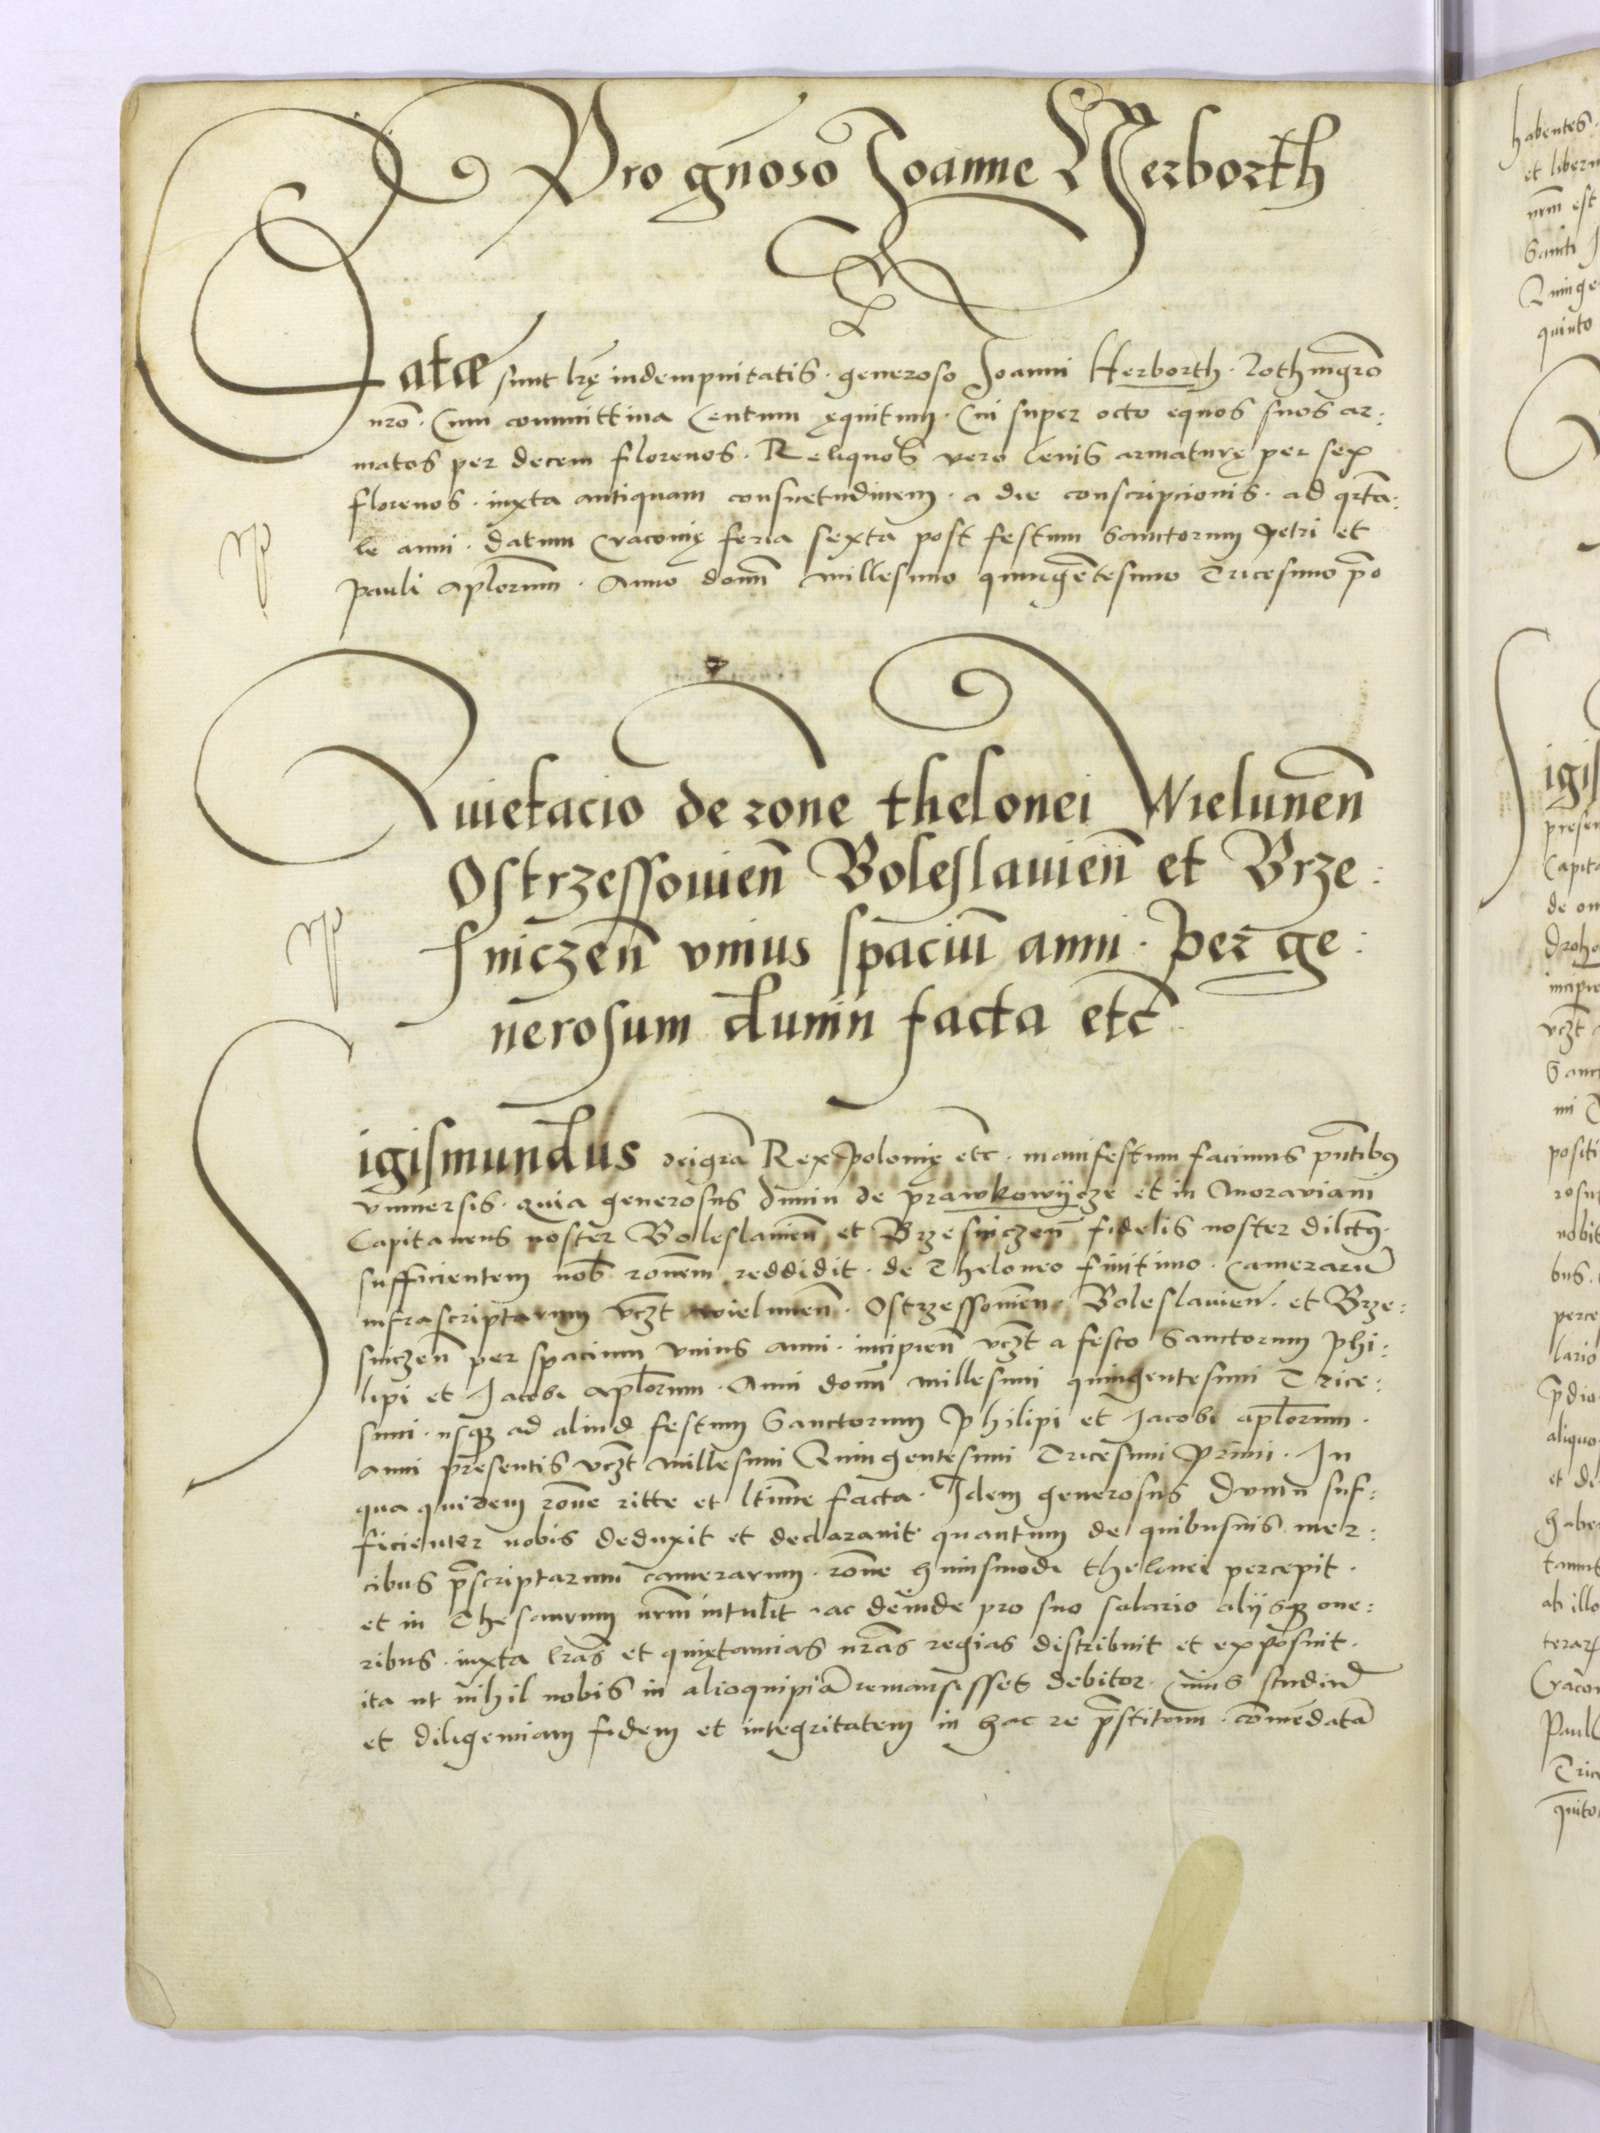 Pro gnōso Joanne Herborth
Datæ sunt lrę indempnitatis · generoso Joanni Herborth · Rothmgrō
nrō · Cum committiua Centum equitum · Cui super octo equos suos ar:
matos per decem florenos · Reliquos vero leuis armaturę per sex
florenos · iuxta antiquam consuetudinem · a die conscripcionis · ad qrta:
le anni · datum Cracouię feria sexta post festum Sanctorum Petri et
Pauli aplorum · Anno domī millesimo quingētesimo Tricesimo pō
Quietacio de rone thelonei Wielunen̄
Ostrzessouien̄ Boleslauien̄ et Brze:
sniczen̄ vnius spaciū anni · Per ge:
nerosum dunin facta etc̄
Sigismundus dei gra Rex Polonię etc · manifestum facimus pn̄tibus
vniuersis · quia generosus dunin de prawkowÿcze et in Moraviam
Capitaneus noster Boleslauien̄ et Brzesniczen̄ fidelis noster dilctus ·
sufficientem nob ronem reddidit · de Theloneo finitimo · Camerarū
infrascriptarum vczt wielunen̄ · Ostrzessouien̄ · Boleslauien̄ · et Brze:
sniczen̄ per spacium vnius anni · incipien̄ vczt a festo Sanctorum Phi:
lipi et Jacobi aplorum · Anni domī millesimi quingentesimi Trice:
simi · usqꝫ ad aliud festum Sanctorum Philipi et Jacobi aplorum ·
anni presentis vczt Millesimi Quingentesimi Tricesimi Primi · In
qua quidem rone ritte et ltime facta · Idem generosus Dunin suf:
ficienter nobis deduxit et declarauit quantum de quibusuis mer:
cibus p̄scriptarum camerarum · rone huiusmodi thelonei percepit ·
et in Thesaurum nrm intulit · ac deinde pro suo salario alijsqꝫ one:
ribus · iuxta lras et quietancias nras regias distribuit et exposuit ·
ita ut nihil nobis in alioquipiā remansisset debitor · Cuius studiū
et diligenciam fidem et integritatem in hac re p̄stitam · comēdatā